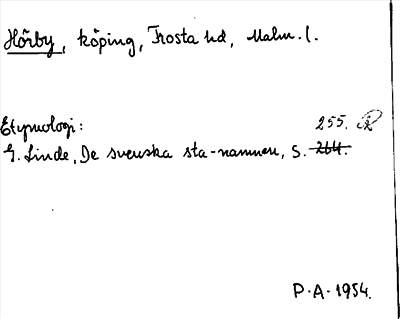 Hörby, köping, Frosta hd, Malm. l.
Etymologi:
255.
G. Linde, De svenska sta-namnen, S. 264.
P.A. 1954.